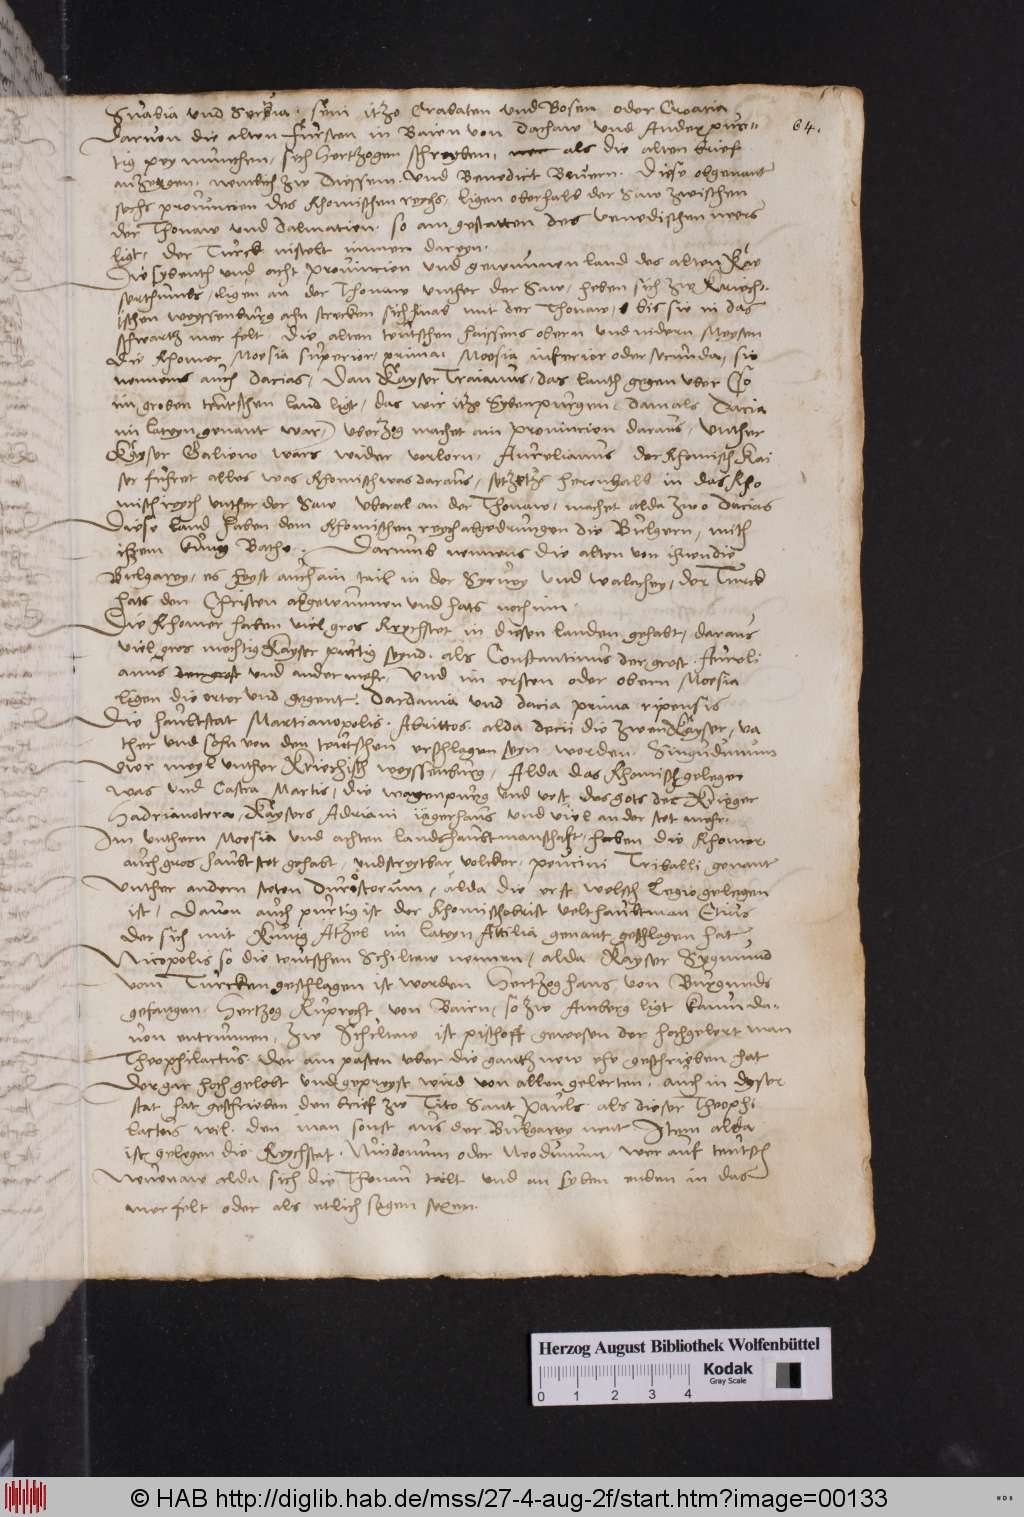 64.
Suabia und Serbia. sein itze Crabaten und Bosen oder Croacia
Daruon die alten Fürsten in Baiern von Dachaw und Andexpur=
tig pey munchen, sich Hertzogen schreyben, als die alten brief
anzeygen. nemlich zw Diessem. und Benedict Beuern. Diese obgenant
sechs prouincien des Rhomischen reychs, ligen oberhalb der Saw zwischen
der Thonaw und Dalmatien. so am gestatten des venedischen meers
ligt, der Turck nistelt immer dareyn.
Die sybenth und acht prouincien und gewunnen land des alten Kay
serthumbs, ligen an der Thonaw unther der Saw, heben sich zw Kriech.
ischen weyssenburg ahn strecken sich hinab mit der Thonaw, bis sie in das
schwartz mer felt. die alten teutschen haissens obern und nidern Meysen
Die Rhomer, Moesia superior, prima, Moesia inferior oder secunda, sie
nennens auch Dacias, Dan Kayser Traianus, das lanth gegen uber so
im groben teutschen land ligt, das wir itze Sybenpurgen, damals Dacia
im lateyn genant war, uberzog machet ain prouincien daraus, unther
Kayser Galieno wars wider verlorn, Aurelianus der Rhomisch Kai
ser furhet alles was Rhomisch was daraus, setzets herenhalb in das Rho
misch reych unther der Saw uberal an der Thonaw, machet alda zwo Dacias
Diese land haben dem Rhomischen reych abgedrungen die Bulgern, mith
ihrem kunig Batho. Darumb nennens die alten von ihnen die
Bulgarey, es heyst auch ain tail in der Syruey und walachey, der Turck
hats den Christen abgewunnen und hats noch inn.
Die Rhomer haben viel gros Reychstet in diesen landen gehabt, daraus
viel gros mechtig Kayser purtig seynd. als Constantinus der gros. Aureli
anus und ander mehr, und im ersten oder obern Moesia
ligen die orter und gegent. Dardania und Dacia prima ripensis
Die haubtstat Martianopolis. Abrittos. alda Decii die zwen Kayser, va
ther und sohn von den teutschen erschlagen seyn worden. Singidunum
vier meyl unther Kriechisch weyssenburg, Alda das Rhomisch geleger
was und Castra Martis, die wagenpurg und vest des Gots der Krieger
Hadrianotera, Kaysers Adriani iagerhaus und viel ander stet mehr.
Im unthern Moesia und achten landshaubtmanschaft, haben die Rhomer
auch gros haubtstet gehabt, und streytbar volcker, Peucini Triballi genant
Unther andern steten Durostorum, alda die erst welsch Legio gelegen
ist, Dauon auch purtig ist der Rhomisch obrist velthaubtman Etius
der sich mit Kunig Atzel im lateyn Attilia genant geschlagen hat
Nicopolis so die teutschen Schiltaw nennen, alda Kayser Sygmund
vom Turcken geschlagen ist worden Hertzog hans von Burgunds
gefangen. Hertzog Ruprecht von Baiern, so zw Amberg ligt kaum da=
von entrunnen, zw Schiltaw ist pischoff gewesen der hochgelert man
Theophilactus. der ain pasten uber die gantz new ehe geschrieben hat
Der gar hoch gelobt und gepreyst wird von allen gelerten, auch in dyser
stat hat geschrieben den brief zw Tito Sant Pauls. als dieser Theophi
lactus wil. den man sonst aus der Bulgarey nent Item alda
ist gelegen die Reychstat. Nuidonum oder Noodunum, wer auf teutsch
Neuenaw alda sich die Thonau tailt und an syben enden in das
mer felt oder als etlich sagen sexen.
Herzog August Bibliothek Wolfenbüttel
Kodak
Gray Scale
0 1 2 3 4
© HAB http://diglib.hab.de/mss/27-4-aug-2f/start.htm?image=00133